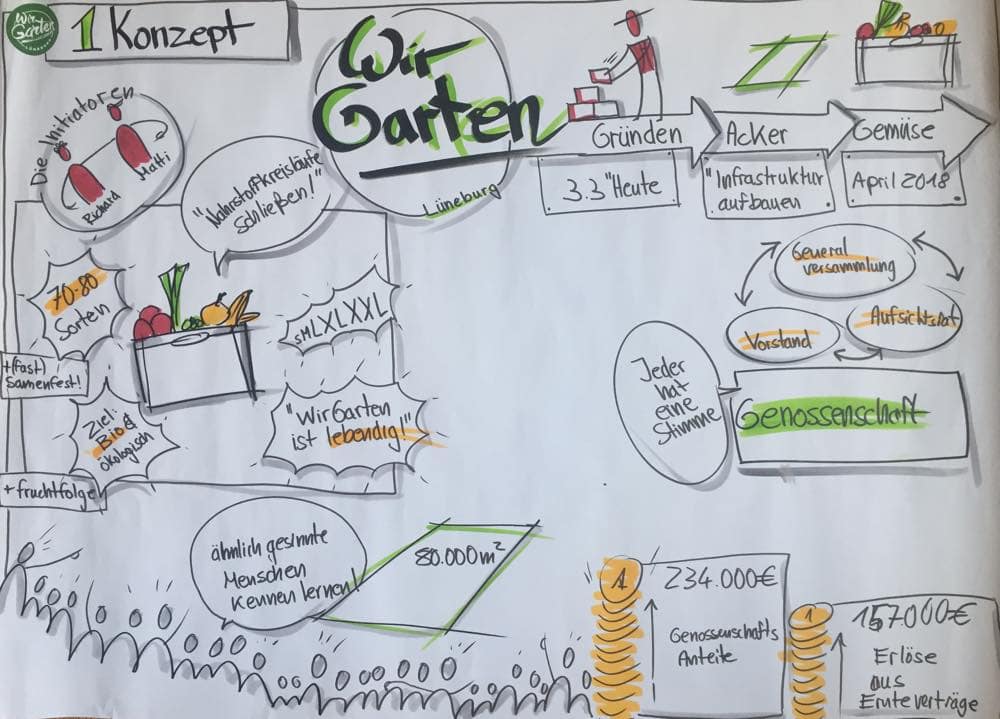 Wir
Garten
LÜNEBURG
1 Konzept
Wir
Garten
Lüneburg
Gründen
Acker
Gemüse
3.3 "Heute
"Infrastruktur
aufbauen
April 2018
Die Initiatoren
Richard
Matti
"Nährstoffkreisläufe
schließen!"
70-80
Sorten
+(fast)
Samenfest!
SMLXLXXL
Ziel:
Bio &
ökologisch
"WirGarten
ist lebendig!"
+ fruchtfolge
General
versammlung
Vorstand
Aufsichtsrat
Jeder
hat
eine
Stimme
Genossenschaft
ähnlich gesinnte
Menschen
kennen lernen!
80.000m²
1
234.000€
Genossenschafts
Anteile
1
157.000€
Erlöse
aus
Ernteverträge